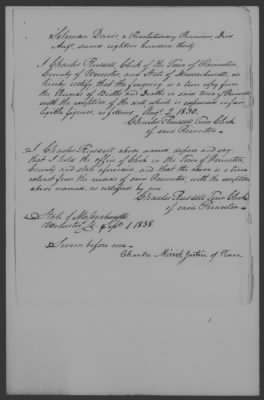 Solomon Davis, a Revolutionary Pensioner, Died
Augt. second eighteen hundred thirty
I Charles Russell Clerk of the Town of Princeton
County of Worcester, and State of Massachusetts, do
hereby certify that the foregoing is a true copy from
the Records of Births and Deaths in said town of Princeton
with the exception of the date which is expressed in fair,
legible figures, as follows, Augt. 2. 1830.
Charles Russell Town Clerk
of said Princeton
I, Charles Russell above named, depose and say,
that I hold the office of Clerk in the Town of Princeton,
County and state aforesaid, and that the above is a true
extract from the records of said Princeton, with the exception
above named, as certified by me
Charles Russell Town Clerk
of said Princeton
State of Massachusetts
Worcester Ss Sept. 1 1838.
Sworn before me
Charles Mirick Justice of Peace